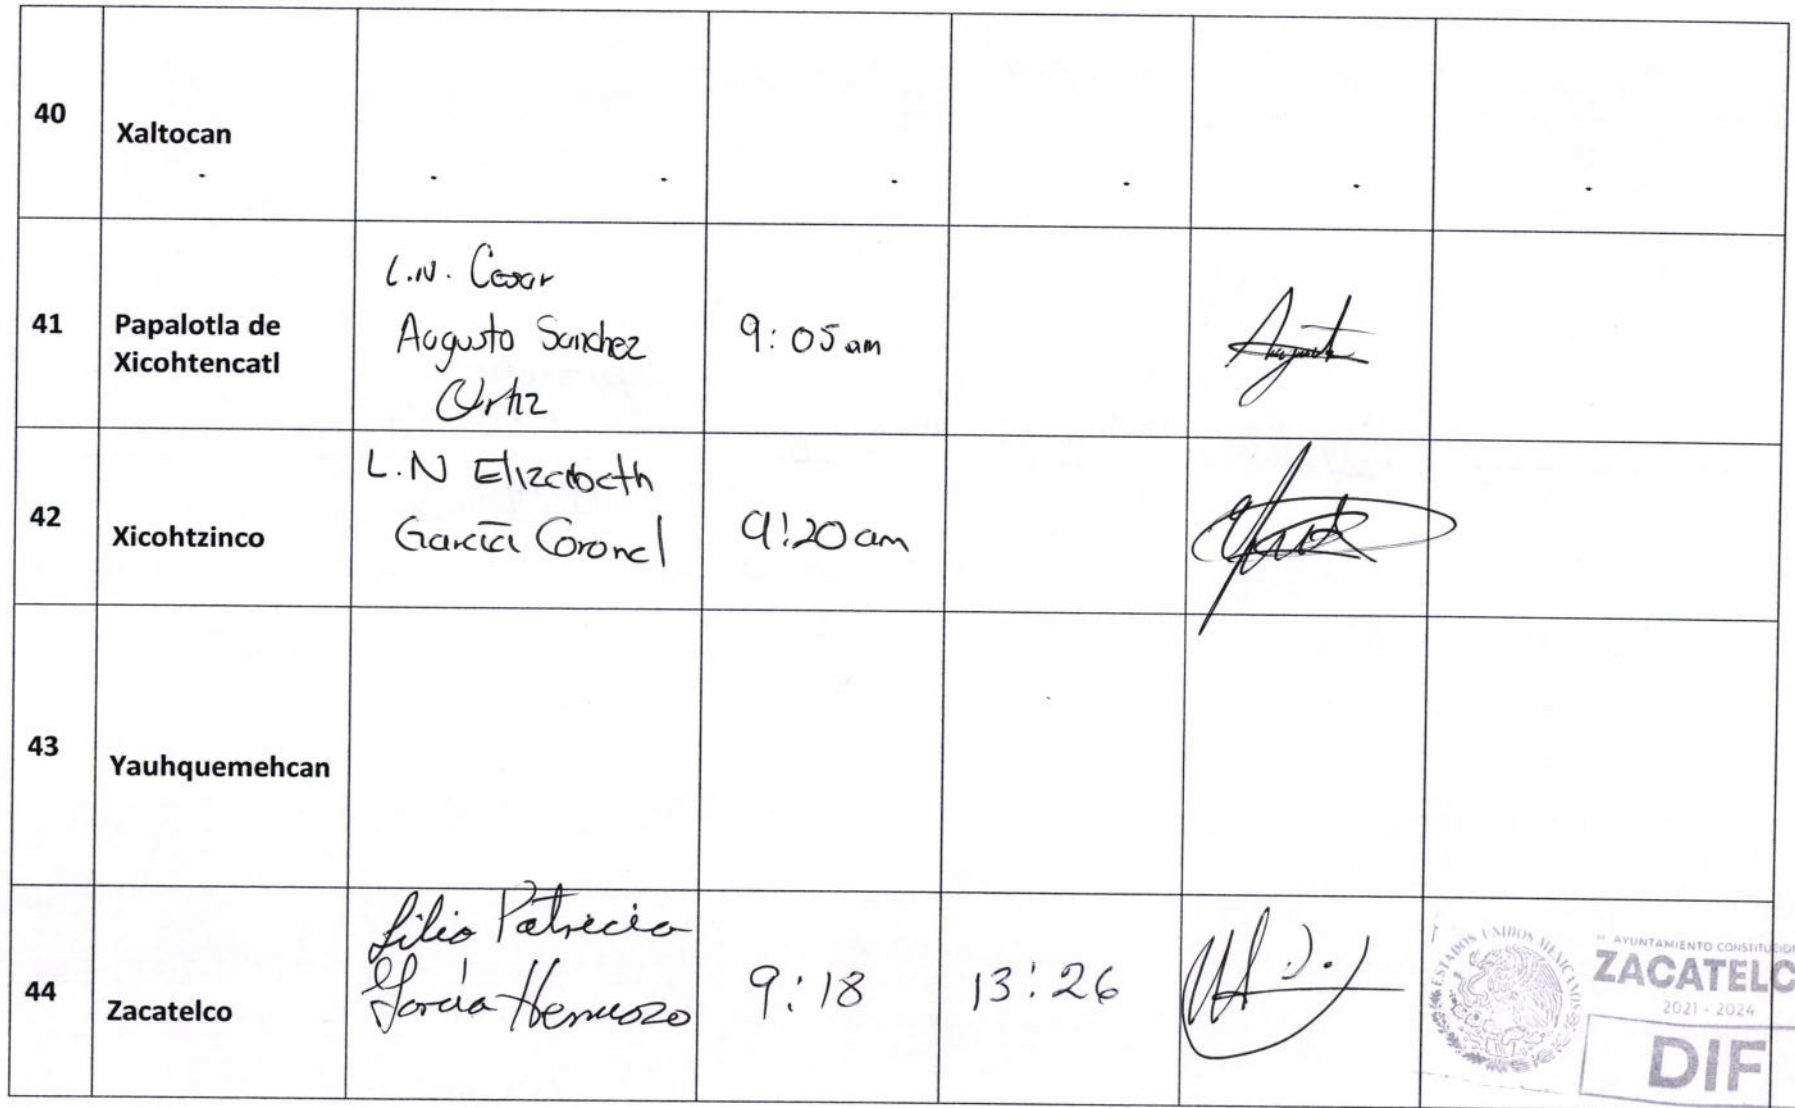 40
Xaltocan
41
Papalotla de
Xicohtencatl
L.N. Cesar
Augusto Sanchez
Ortiz
9:05 am
42
Xicohtzinco
L.N Elizabeth
García Coronel
9:20 am
43
Yauhquemehcan
44
Zacatelco
Lilia Patricia
García Hermoso
9:18
13:26
ESTADOS UNIDOS MEXICANOS
H. AYUNTAMIENTO CONSTITUCION
ZACATELC
2021 - 2024
DIF